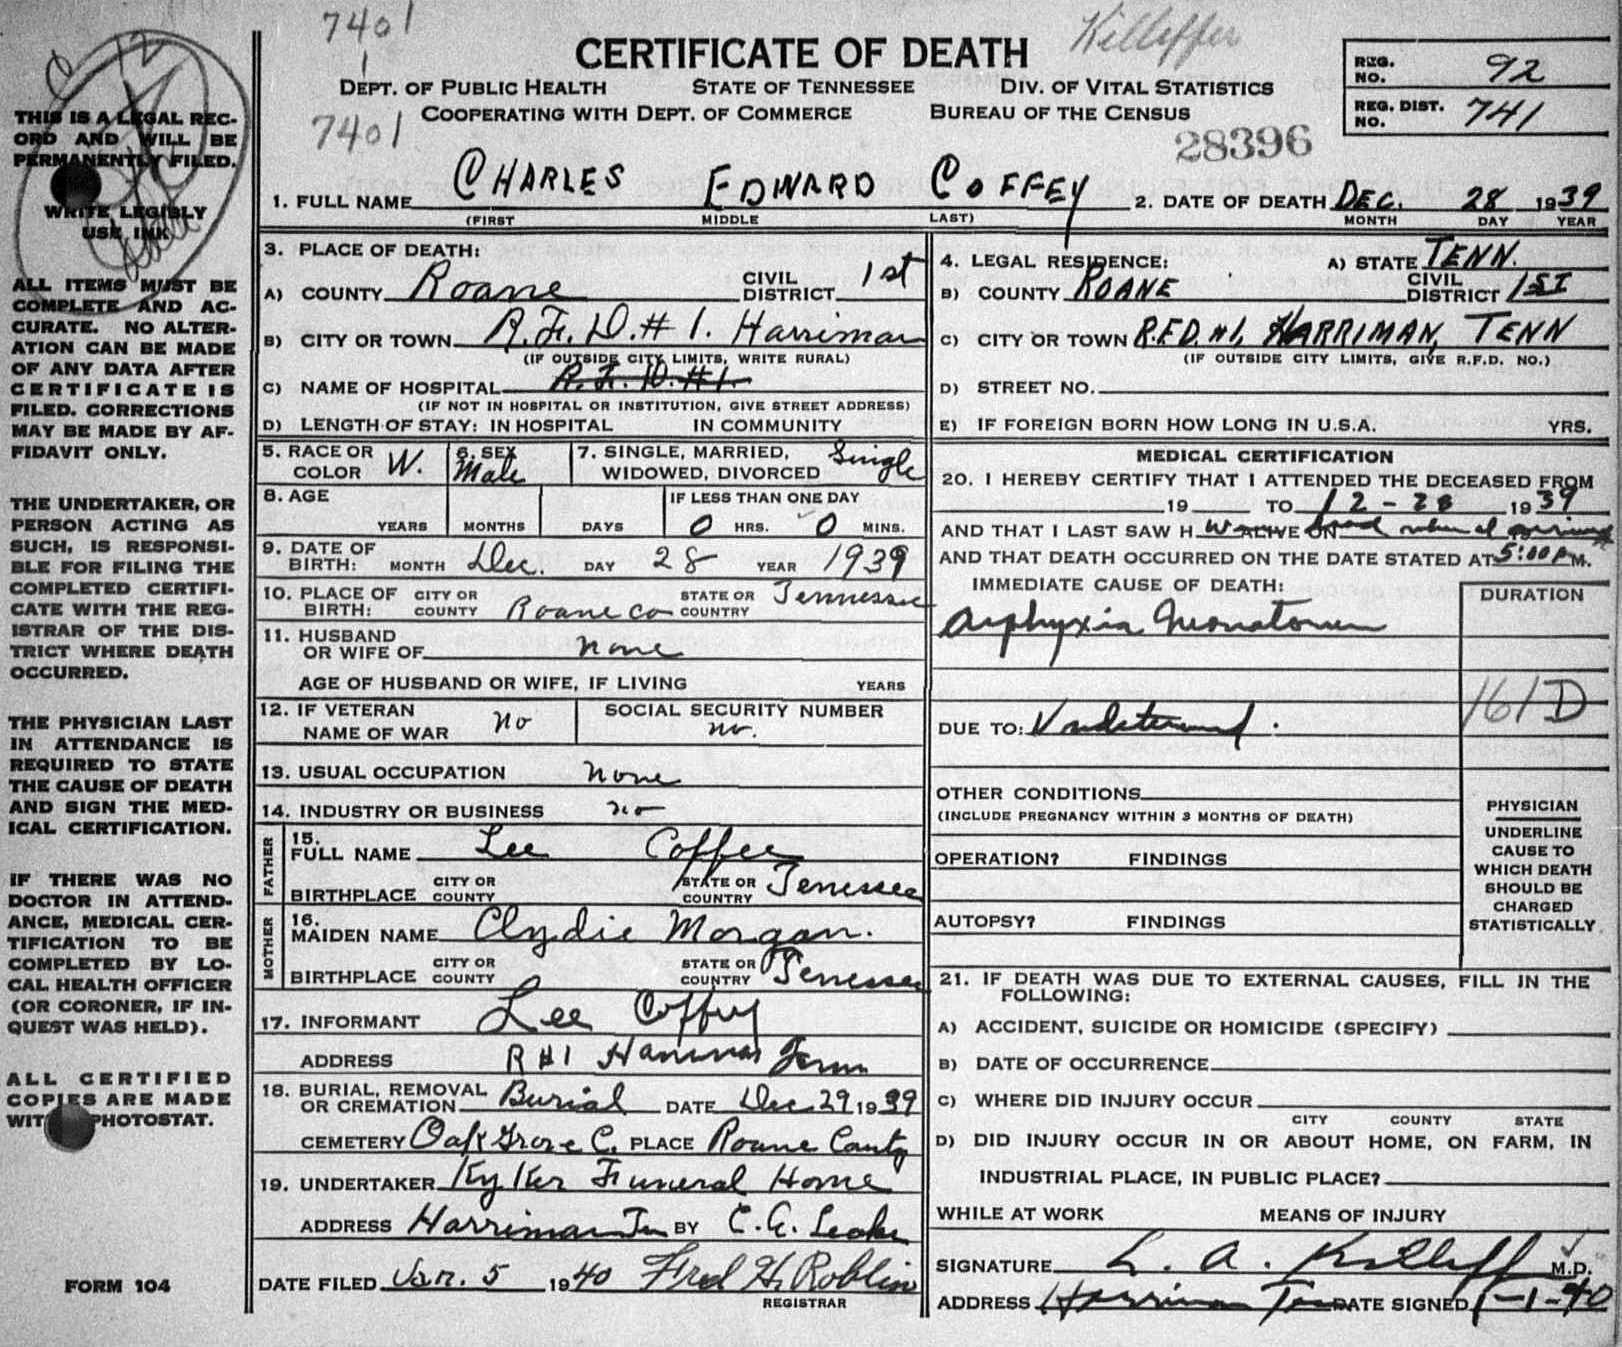 7401
Killeffer
CERTIFICATE OF DEATH
DEPT. OF PUBLIC HEALTH STATE OF TENNESSEE DIV. OF VITAL STATISTICS
COOPERATING WITH DEPT. OF COMMERCE BUREAU OF THE CENSUS
REG. NO. 92
REG. DIST. NO. 741
7401
28396
1. FULL NAME CHARLES EDWARD COFFEY 2. DATE OF DEATH DEC. 28 1939
(FIRST MIDDLE LAST) MONTH DAY YEAR
THIS IS A LEGAL REC-
ORD AND WILL BE
PERMANENTLY FILED.
WRITE LEGIBLY
USE INK
ALL ITEMS MUST BE
COMPLETE AND AC-
CURATE. NO ALTER-
ATION CAN BE MADE
OF ANY DATA AFTER
CERTIFICATE IS
FILED. CORRECTIONS
MAY BE MADE BY AF-
FIDAVIT ONLY.
THE UNDERTAKER, OR
PERSON ACTING AS
SUCH, IS RESPONSI-
BLE FOR FILING THE
COMPLETED CERTIFI-
CATE WITH THE REG-
ISTRAR OF THE DIS-
TRICT WHERE DEATH
OCCURRED.
THE PHYSICIAN LAST
IN ATTENDANCE IS
REQUIRED TO STATE
THE CAUSE OF DEATH
AND SIGN THE MED-
ICAL CERTIFICATION.
IF THERE WAS NO
DOCTOR IN ATTEND-
ANCE, MEDICAL CER-
TIFICATION TO BE
COMPLETED BY LO-
CAL HEALTH OFFICER
(OR CORONER, IF IN-
QUEST WAS HELD).
ALL CERTIFIED
COPIES ARE MADE
WITH PHOTOSTAT.
FORM 104
3. PLACE OF DEATH:
A) COUNTY Roane CIVIL DISTRICT 1st
B) CITY OR TOWN R.F.D. #1. Harriman
(IF OUTSIDE CITY LIMITS, WRITE RURAL)
C) NAME OF HOSPITAL R.F.D. #1.
(IF NOT IN HOSPITAL OR INSTITUTION, GIVE STREET ADDRESS)
D) LENGTH OF STAY: IN HOSPITAL IN COMMUNITY
5. RACE OR COLOR W. 6. SEX Male 7. SINGLE, MARRIED, WIDOWED, DIVORCED Single
8. AGE YEARS MONTHS DAYS IF LESS THAN ONE DAY 0 HRS. 0 MINS.
9. DATE OF BIRTH: MONTH Dec. DAY 28 YEAR 1939
10. PLACE OF BIRTH: CITY OR COUNTY Roane co STATE OR COUNTRY Tennessee
11. HUSBAND OR WIFE OF none
AGE OF HUSBAND OR WIFE, IF LIVING YEARS
12. IF VETERAN NAME OF WAR no SOCIAL SECURITY NUMBER no.
13. USUAL OCCUPATION none
14. INDUSTRY OR BUSINESS no
FATHER
15. FULL NAME Lee Coffee
BIRTHPLACE CITY OR COUNTY STATE OR COUNTRY Tenessee
MOTHER
16. MAIDEN NAME Clydie Morgan.
BIRTHPLACE CITY OR COUNTY STATE OR COUNTRY Tenessee
17. INFORMANT Lee Coffey
ADDRESS R #1 Harriman Tenn
18. BURIAL, REMOVAL OR CREMATION Burial DATE Dec 29 1939
CEMETERY Oak Grove C. PLACE Roane County
19. UNDERTAKER Kyker Funeral Home
ADDRESS Harriman Ten BY
DATE FILED Jan. 5 1940 Fred H. Roblin
REGISTRAR
4. LEGAL RESIDENCE: A) STATE TENN.
B) COUNTY ROANE CIVIL DISTRICT 1ST
C) CITY OR TOWN R.F.D. #1, HARRIMAN, TENN
(IF OUTSIDE CITY LIMITS, GIVE R.F.D. NO.)
D) STREET NO.
E) IF FOREIGN BORN HOW LONG IN U.S.A. YRS.
MEDICAL CERTIFICATION
20. I HEREBY CERTIFY THAT I ATTENDED THE DECEASED FROM
19 TO 12-28 1939
AND THAT I LAST SAW H ALIVE ON
AND THAT DEATH OCCURRED ON THE DATE STATED AT 5:00 P M.
IMMEDIATE CAUSE OF DEATH: DURATION
Asphyxia Neonatorum
161D
DUE TO: Undetermined.
OTHER CONDITIONS
(INCLUDE PREGNANCY WITHIN 3 MONTHS OF DEATH)
OPERATION? FINDINGS
AUTOPSY? FINDINGS
PHYSICIAN
UNDERLINE
CAUSE TO
WHICH DEATH
SHOULD BE
CHARGED
STATISTICALLY.
21. IF DEATH WAS DUE TO EXTERNAL CAUSES, FILL IN THE
FOLLOWING:
A) ACCIDENT, SUICIDE OR HOMICIDE (SPECIFY)
B) DATE OF OCCURRENCE
C) WHERE DID INJURY OCCUR
CITY COUNTY STATE
D) DID INJURY OCCUR IN OR ABOUT HOME, ON FARM, IN
INDUSTRIAL PLACE, IN PUBLIC PLACE?
WHILE AT WORK MEANS OF INJURY
SIGNATURE L. A. Killeff M.D.
ADDRESS Harriman Tenn DATE SIGNED 1-1-40